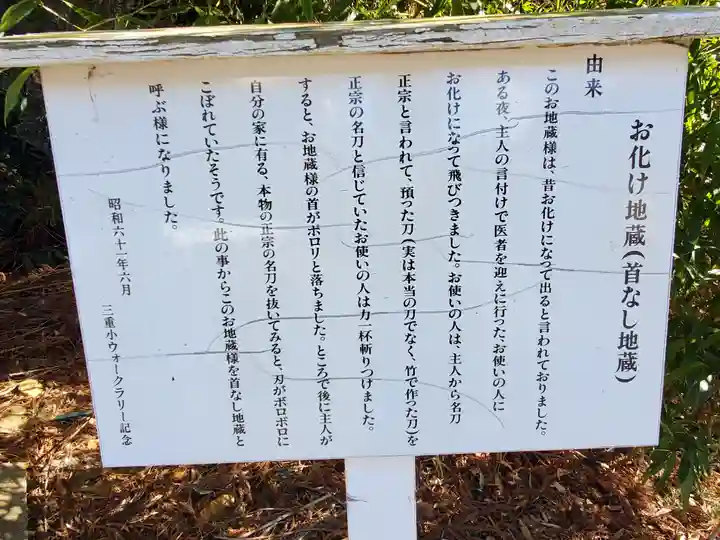 お化け地蔵(首なし地蔵)
由来
このお地蔵様は、昔お化けになって出ると言われておりました。
ある夜、主人の言付けで医者を迎えに行った、お使いの人に
お化けになって飛びつきました。お使いの人は、主人から名刀
正宗と言われて、預った刀(実は本当の刀でなく、竹で作った刀)を
正宗の名刀と信じていたお使いの人は力一杯斬りつけました。
すると、お地蔵様の首がポロリと落ちました。ところで後に主人が
自分の家に有る、本物の正宗の名刀を抜いてみると、刃がボロボロに
こぼれていたそうです。此の事からこのお地蔵様を首なし地蔵と
呼ぶ様になりました。
昭和六十一年六月 三重小ウォークラリー記念